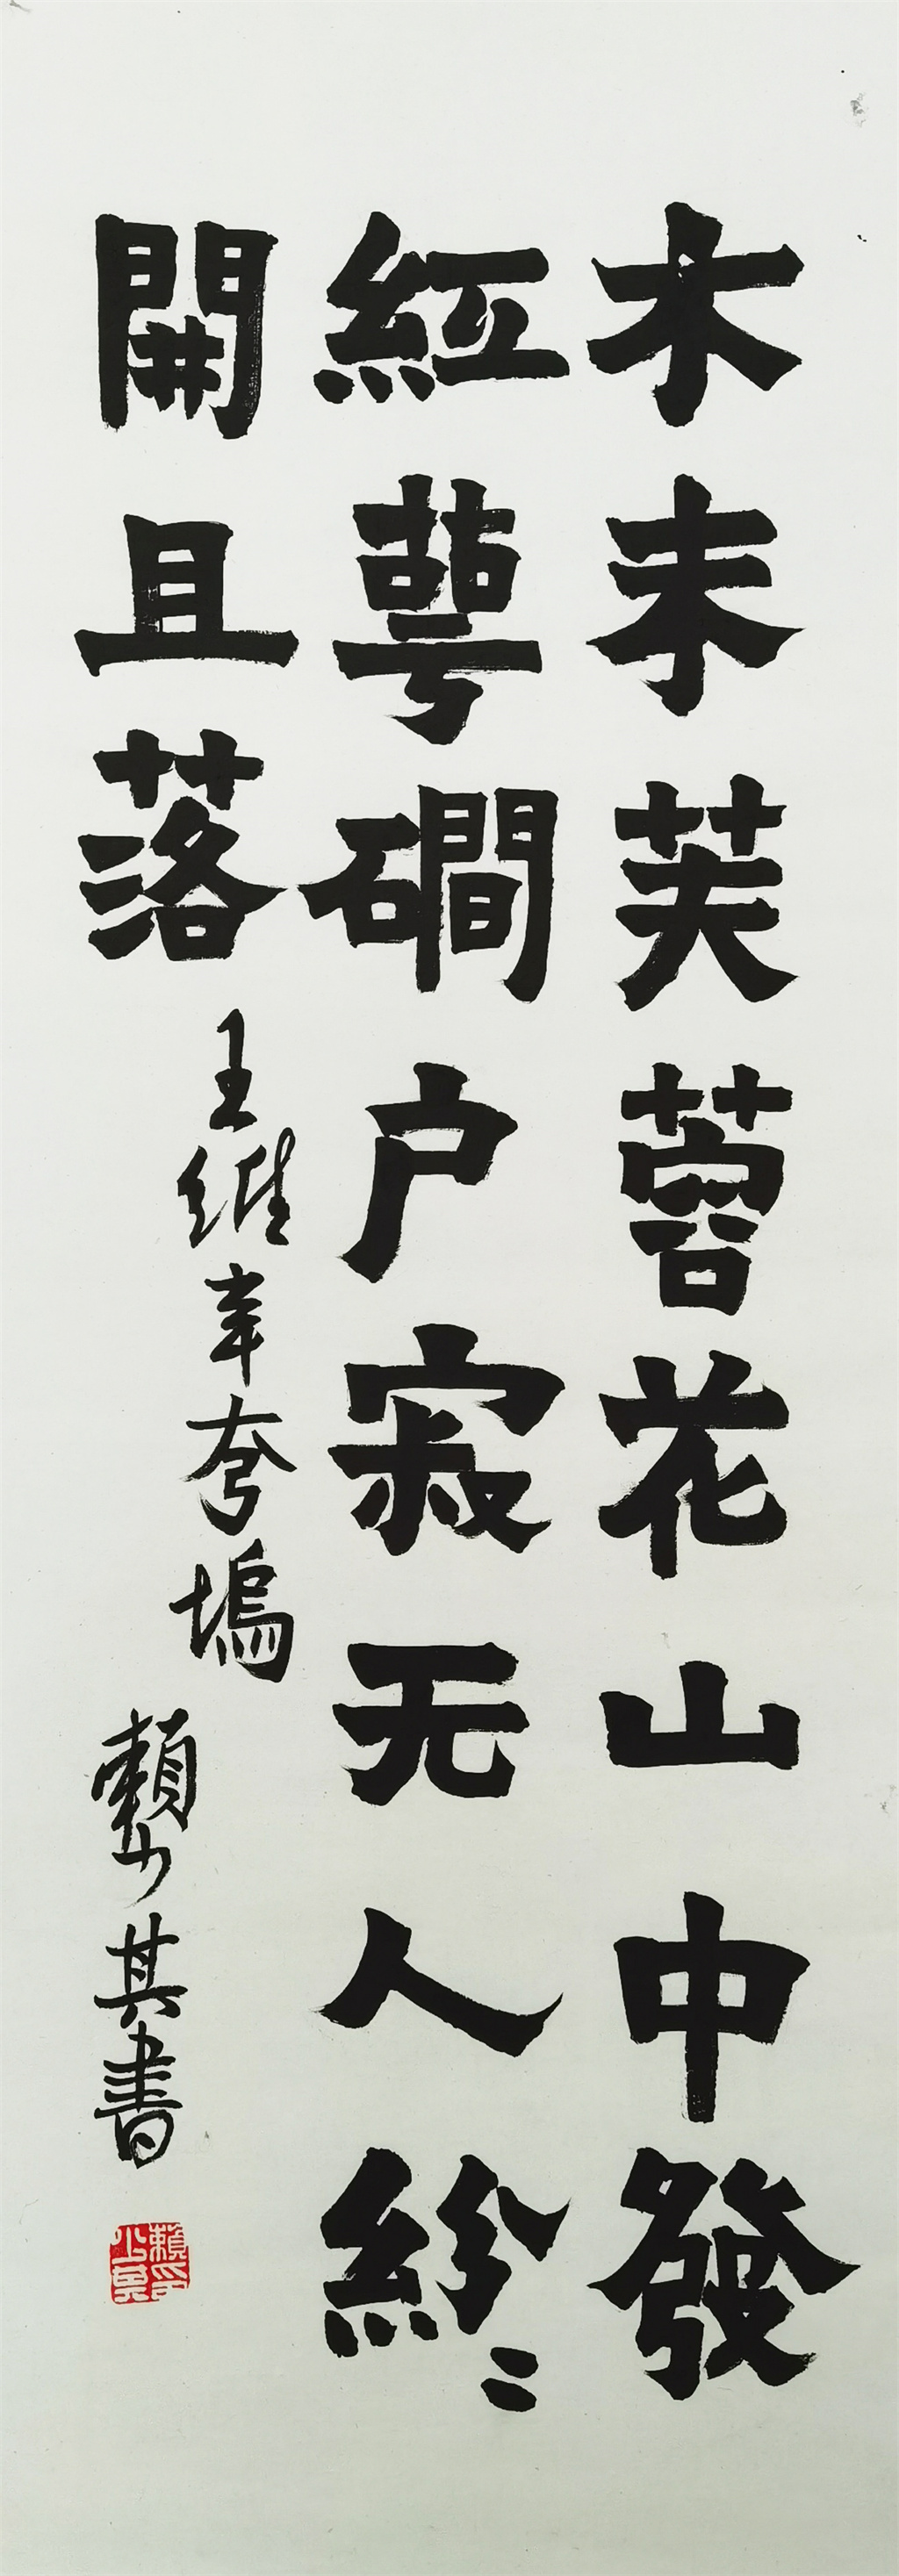 木末芙蓉花山中發
紅萼磵户寂无人紛〻
開且落
王維辛夸塢
賴少其書